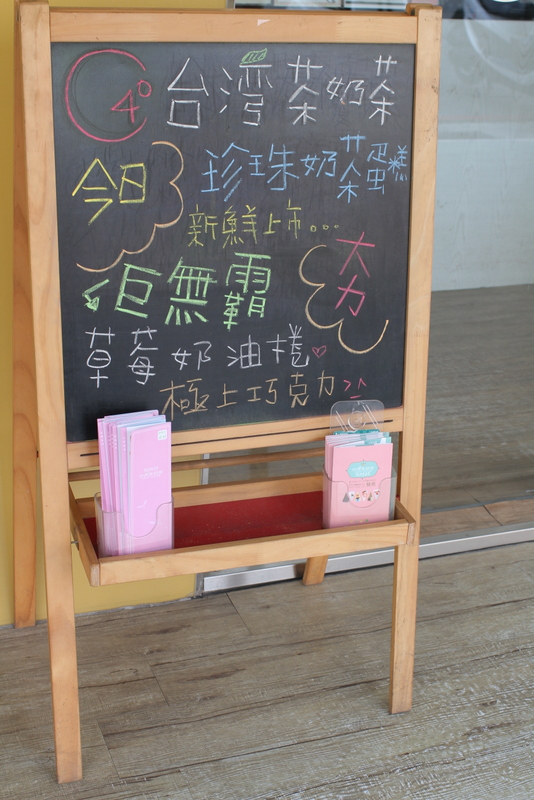 4°
台灣茶奶茶
今日
珍珠奶茶蛋糕
新鮮上市...
巨無霸
大力
草莓奶油捲♡
極上巧克力